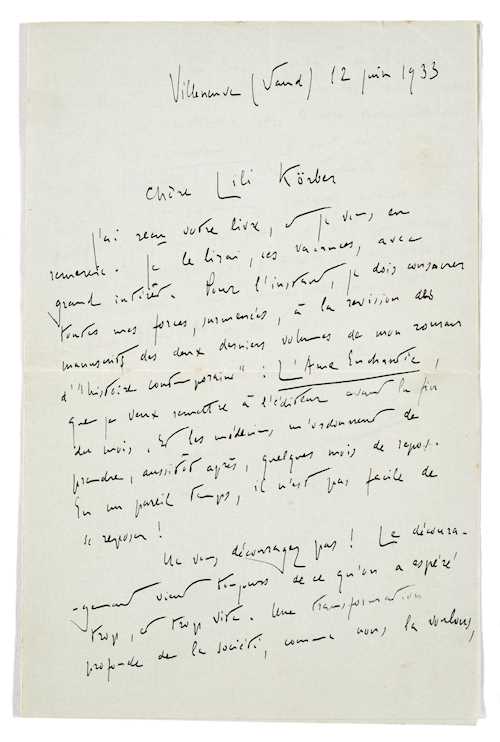 Villeneuve (Vaud) 12 juin 1933
Chère Lili Körber
J'ai reçu votre livre, et je vous en
remercie. Je le lirai, ces vacances, avec
grand intérêt. Pour l'instant, je dois consacrer
toutes mes forces, surmenées, à la revision des
manuscrits des deux derniers volumes de mon roman
d'"histoire contemporaine" : L'Ame Enchantée,
que je veux remettre à l'éditeur avant la fin
du mois. Et les médecins m'ordonnent de
prendre, aussitôt après, quelques mois de repos.
En un pareil temps, il n'est pas facile de
se reposer !
Ne vous découragez pas ! Le découra-
-gement vient toujours de ce qu'on a espéré
trop, et trop vite. Une transformation
profonde de la société, comme nous la voulons,